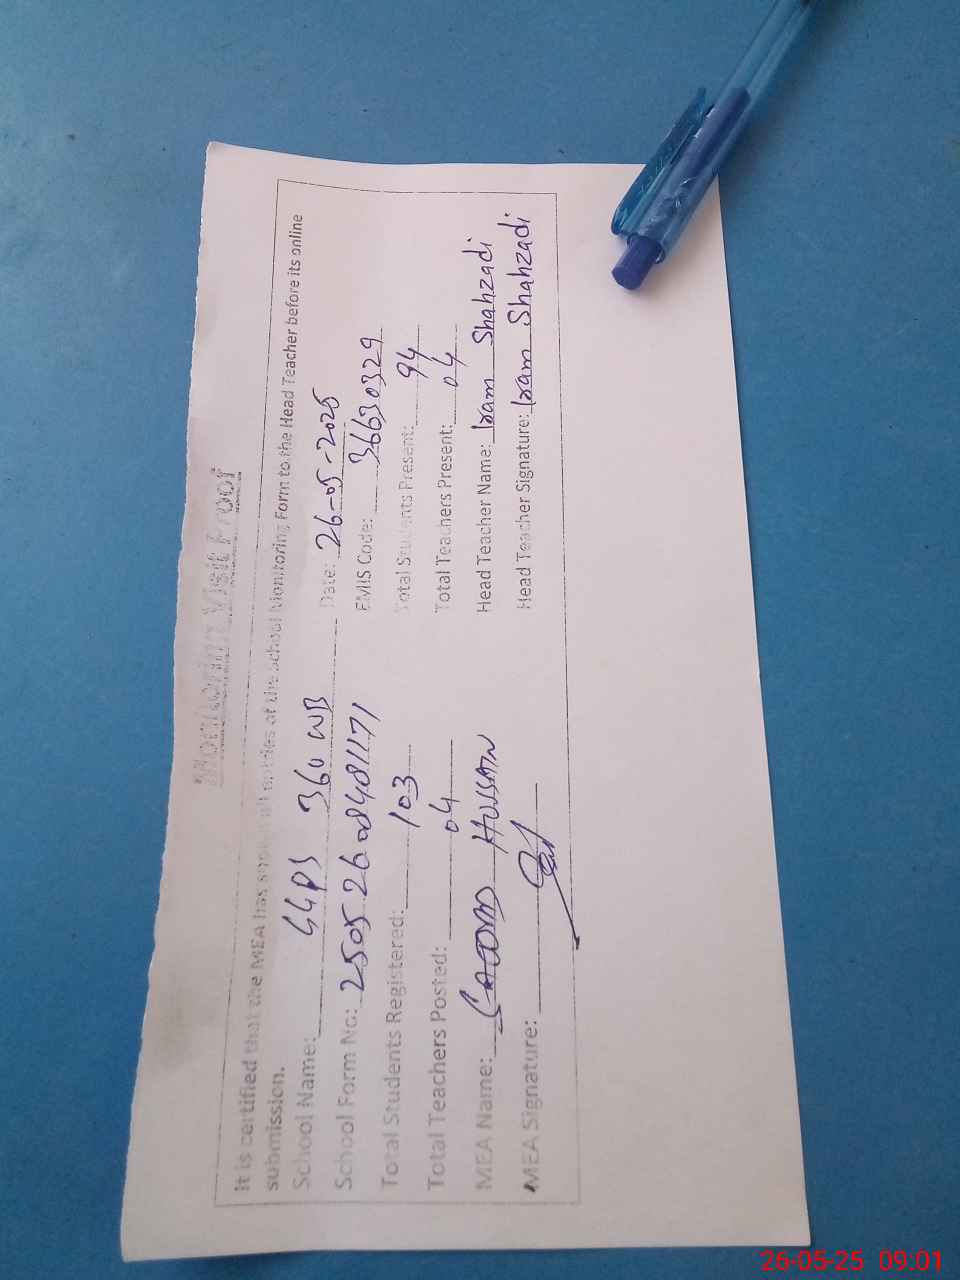 Monitoring Visit Proof
It is certified that the MEA has shown all entries of the School Monitoring Form to the Head Teacher before its online
submission.
School Name: GGPS 360 WB Date: 26-05-2025
School Form No: 250526008481171 EMIS Code: 36630329
Total Students Registered: 103 Total Students Present: 94
Total Teachers Posted: 04 Total Teachers Present: 04
MEA Name: HUSSAIN Head Teacher Name: Iram Shahzadi
MEA Signature: Head Teacher Signature: Iram Shahzadi
26-05-25 09:01